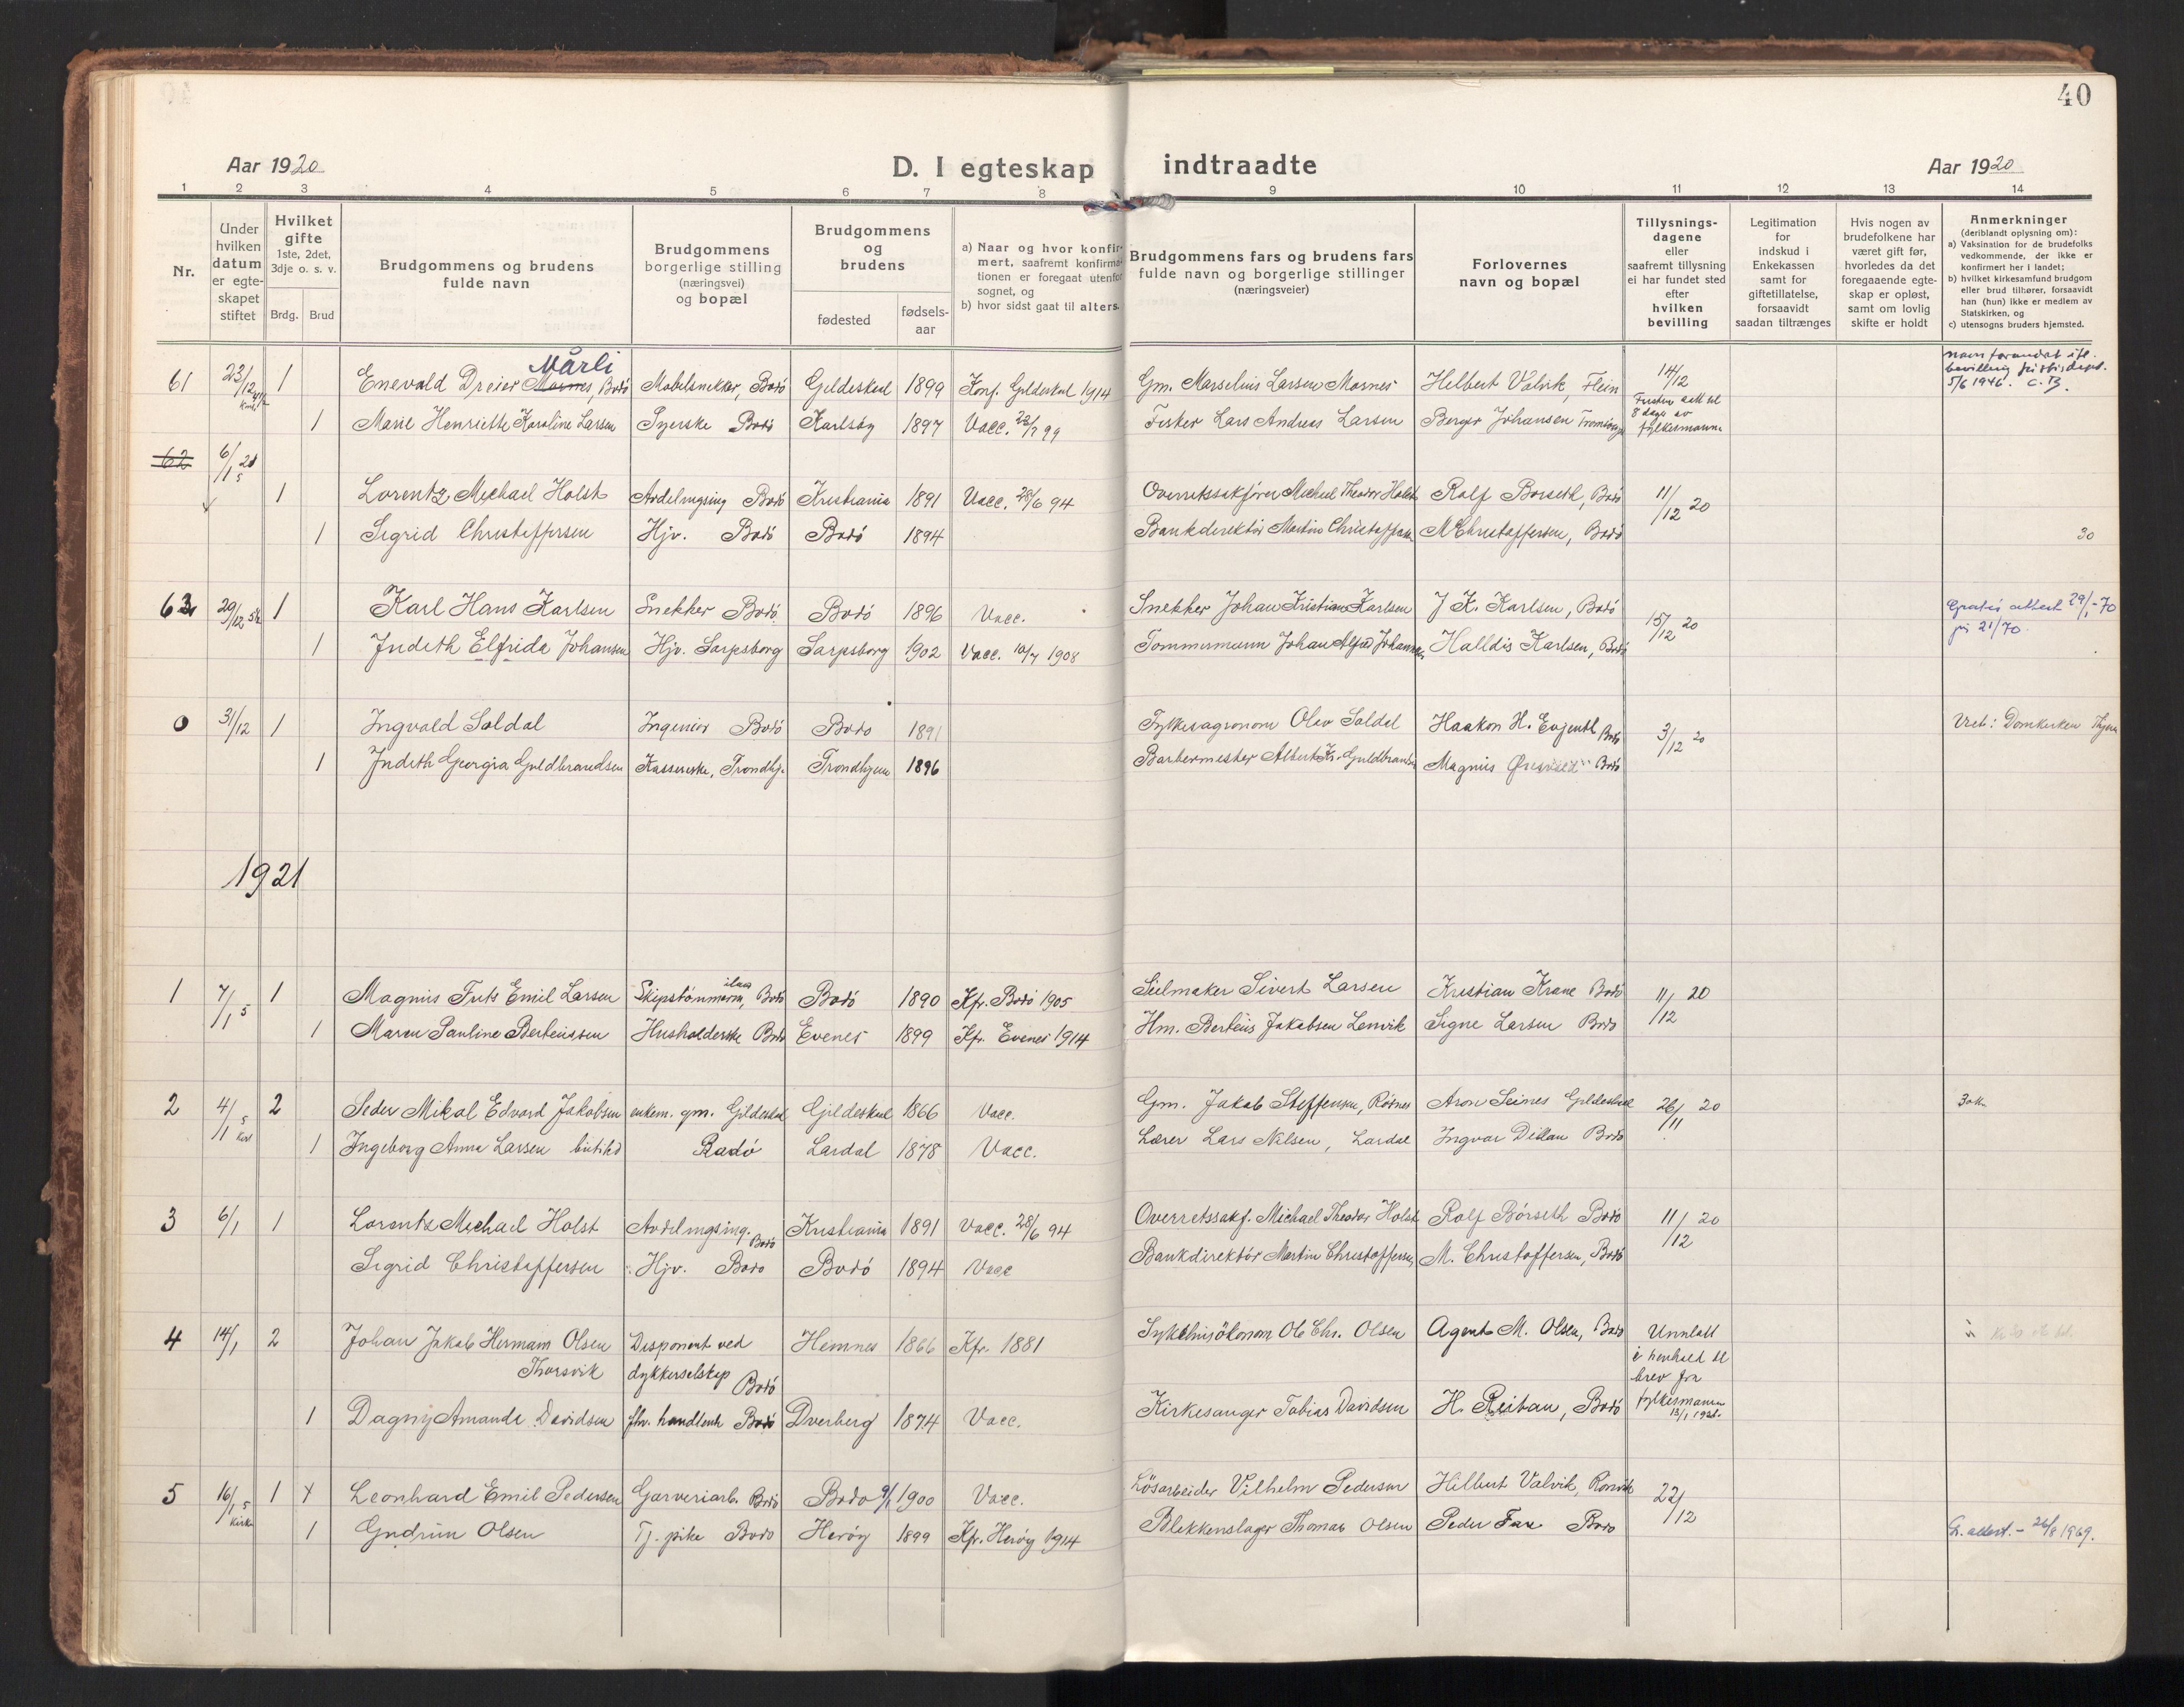 40
Aar 1920
D. I egteskap indtraadte
Aar 1920
1 2 3 4 5 6 7 8 9 10 11 12 13 14
Nr.
Under hvilken datum er egteskapet stiftet
Hvilket gifte 1ste, 2det, 3dje o. s. v.
Brdg. Brud
Brudgommens og brudens fulde navn
Brudgommens borgerlige stilling (næringsvei) og bopæl
Brudgommens og brudens
fødested
fødsels-aar
a) Naar og hvor konfirmert, saafremt konfirmationen er foregaat utenfor sognet, og
b) hvor sidst gaat til alters.
Brudgommens fars og brudens fars fulde navn og borgerlige stillinger (næringsveier)
Forlovernes navn og bopæl
Tillysningsdagene eller saafremt tillysning ei har fundet sted efter hvilken bevilling
Legitimation for indskud i Enkekassen samt for giftetillatelse, forsaavidt saadan tiltrænges
Hvis nogen av brudefolkene har været gift før, hvorledes da det foregaaende egteskap er opløst, samt om lovlig skifte er holdt
Anmerkninger (deriblandt oplysning om):
a) Vaksination for de brudefolks vedkommende, der ikke er konfirmert her i landet;
b) hvilket kirkesamfund brudgom eller brud tilhører, forsaavidt han (hun) ikke er medlem av Statskirken, og
c) utensogns bruders hjemsted.
Mårli
61 23/12 1 Enevald Dreier Mosnes, Bodö Möbelsnekker, Bodö Gildeskaal 1899 Konf. Gildeskaal 1914 Gm. Marselius Larsen Mosnes Helbert Valvik, Flein 14/12
navn forandret ifl. bevilling justisdept. 5/6 1946. C.B.
1 Marie Henriette Karoline Larsen Syerske Bodö Karlsöy 1897 Vacc. 22/7 99 Fisker Lars Andreas Larsen Berger Johansen
Fristen satt til 8 dager av fylkesmannen
62 6/1 21 5
1 Lorentz Michael Holst Avdelingsing Bodö Kristiania 1891 Vacc. 28/6 94 Overretssakförer Michael Theodor Holst Rolf Borseth, Bodö 11/12 20
1 Sigrid Christoffersen Hjv. Bodö Bodö 1894 Bankdirektör Martin Christoffersen M Christoffersen, Bodö 30
62 29/12 5½ 1 Karl Hans Karlsen Snekker Bodö Bodö 1896 Vacc. Snekker Johan Kristian Karlsen J K. Karlsen, Bodö 15/12 20 Gratis attest 29/1-70 jn 21/70.
1 Judith Elfrida Johansen Hjv. Sarpsborg Sarpsborg 1902 Vacc. 10/7 1908 Tömmermann Johan Alfred Johansen Halldis Karlsen, Bodö
0 31/12 1 Ingvald Soldal Ingeniör Bodö Bodö 1891 Fylkesagronom Olav Soldal Haakon H. Evjenth Bodö 3/12 20 Viet: Domkirken Thjem
1 Judith Georgia Guldbrandsen Kassererske, Trondhj. Trondhjem 1896 Barbermester Albert Kr. Guldbrandsen Magnus Bodö
1921
1 7/1 5 1 Magnus Frits Emil Larsen Skipstömmerm, Bodö Bodö 1890 Kfr. Bodö 1905 Seilmaker Sivert Larsen Kristian Krane Bodö 11/12 20
1 Maren Pauline Berteussen Husholderske Bodö Evenes 1899 Kfr. Evenes 1914 Hm. Berteus Jakobsen Lenvik Signe Larsen Bodö
2 4/1 5 2 Peder Mikal Edvard Jakobsen enkem. gm. Gildeskaal Gildeskaal 1866 Vacc. Gm. Jakob Steffensen, Rösnes Aron Seines Gildeskaal 26/11 20
1 Ingeborg Anna Larsen Bodö Lardal 1878 Vacc. Lærer Lars Nilsen, Lardal Ingvar Bodö
3 6/1 1 Lorentz Michael Holst Avdelingsing. Bodö Kristiania 1891 Vacc. 28/6 94 Overretssakf. Michael Theodor Holst Rolf Börseth Bodö 11/12 20
Sigrid Christoffersen Hjv. Bodö Bodö 1894 Vacc Bankdirektör Martin Christoffersen, M. Christoffersen, Bodö
4 14/1 2 Johan Jakob Hermann Olsen Thorsvik Disponent ved dykkerselskap Bodö Hemnes 1866 Kfr. 1881 Sykehusökonom Ole Chr. Olsen Agent M. Olsen, Bodö Unnlatt i henhold til brev fra fylkesmannen 13/1 1921.
1 Dagny Amanda Davidsen fhv. handlende Bodö Dverberg 1874 Vacc. Kirkesanger Tobias Davidsen H. Reitan, Bodö
5 16/1 5 Kirke 1 Leonhard Emil Pedersen Garveriarb. Bodö Bodö 9/1 1900 Vacc. Lösarbeider Vilhelm Pedersen Hilbert Valvik, Rönvik 22/12
1 Gudrun Olsen Tj. pike Bodö Heröy 1899 Kfr. Heröy 1914 Blikkenslager Thomas Olsen Peder Bodö G. attest. - 26/8 1969.